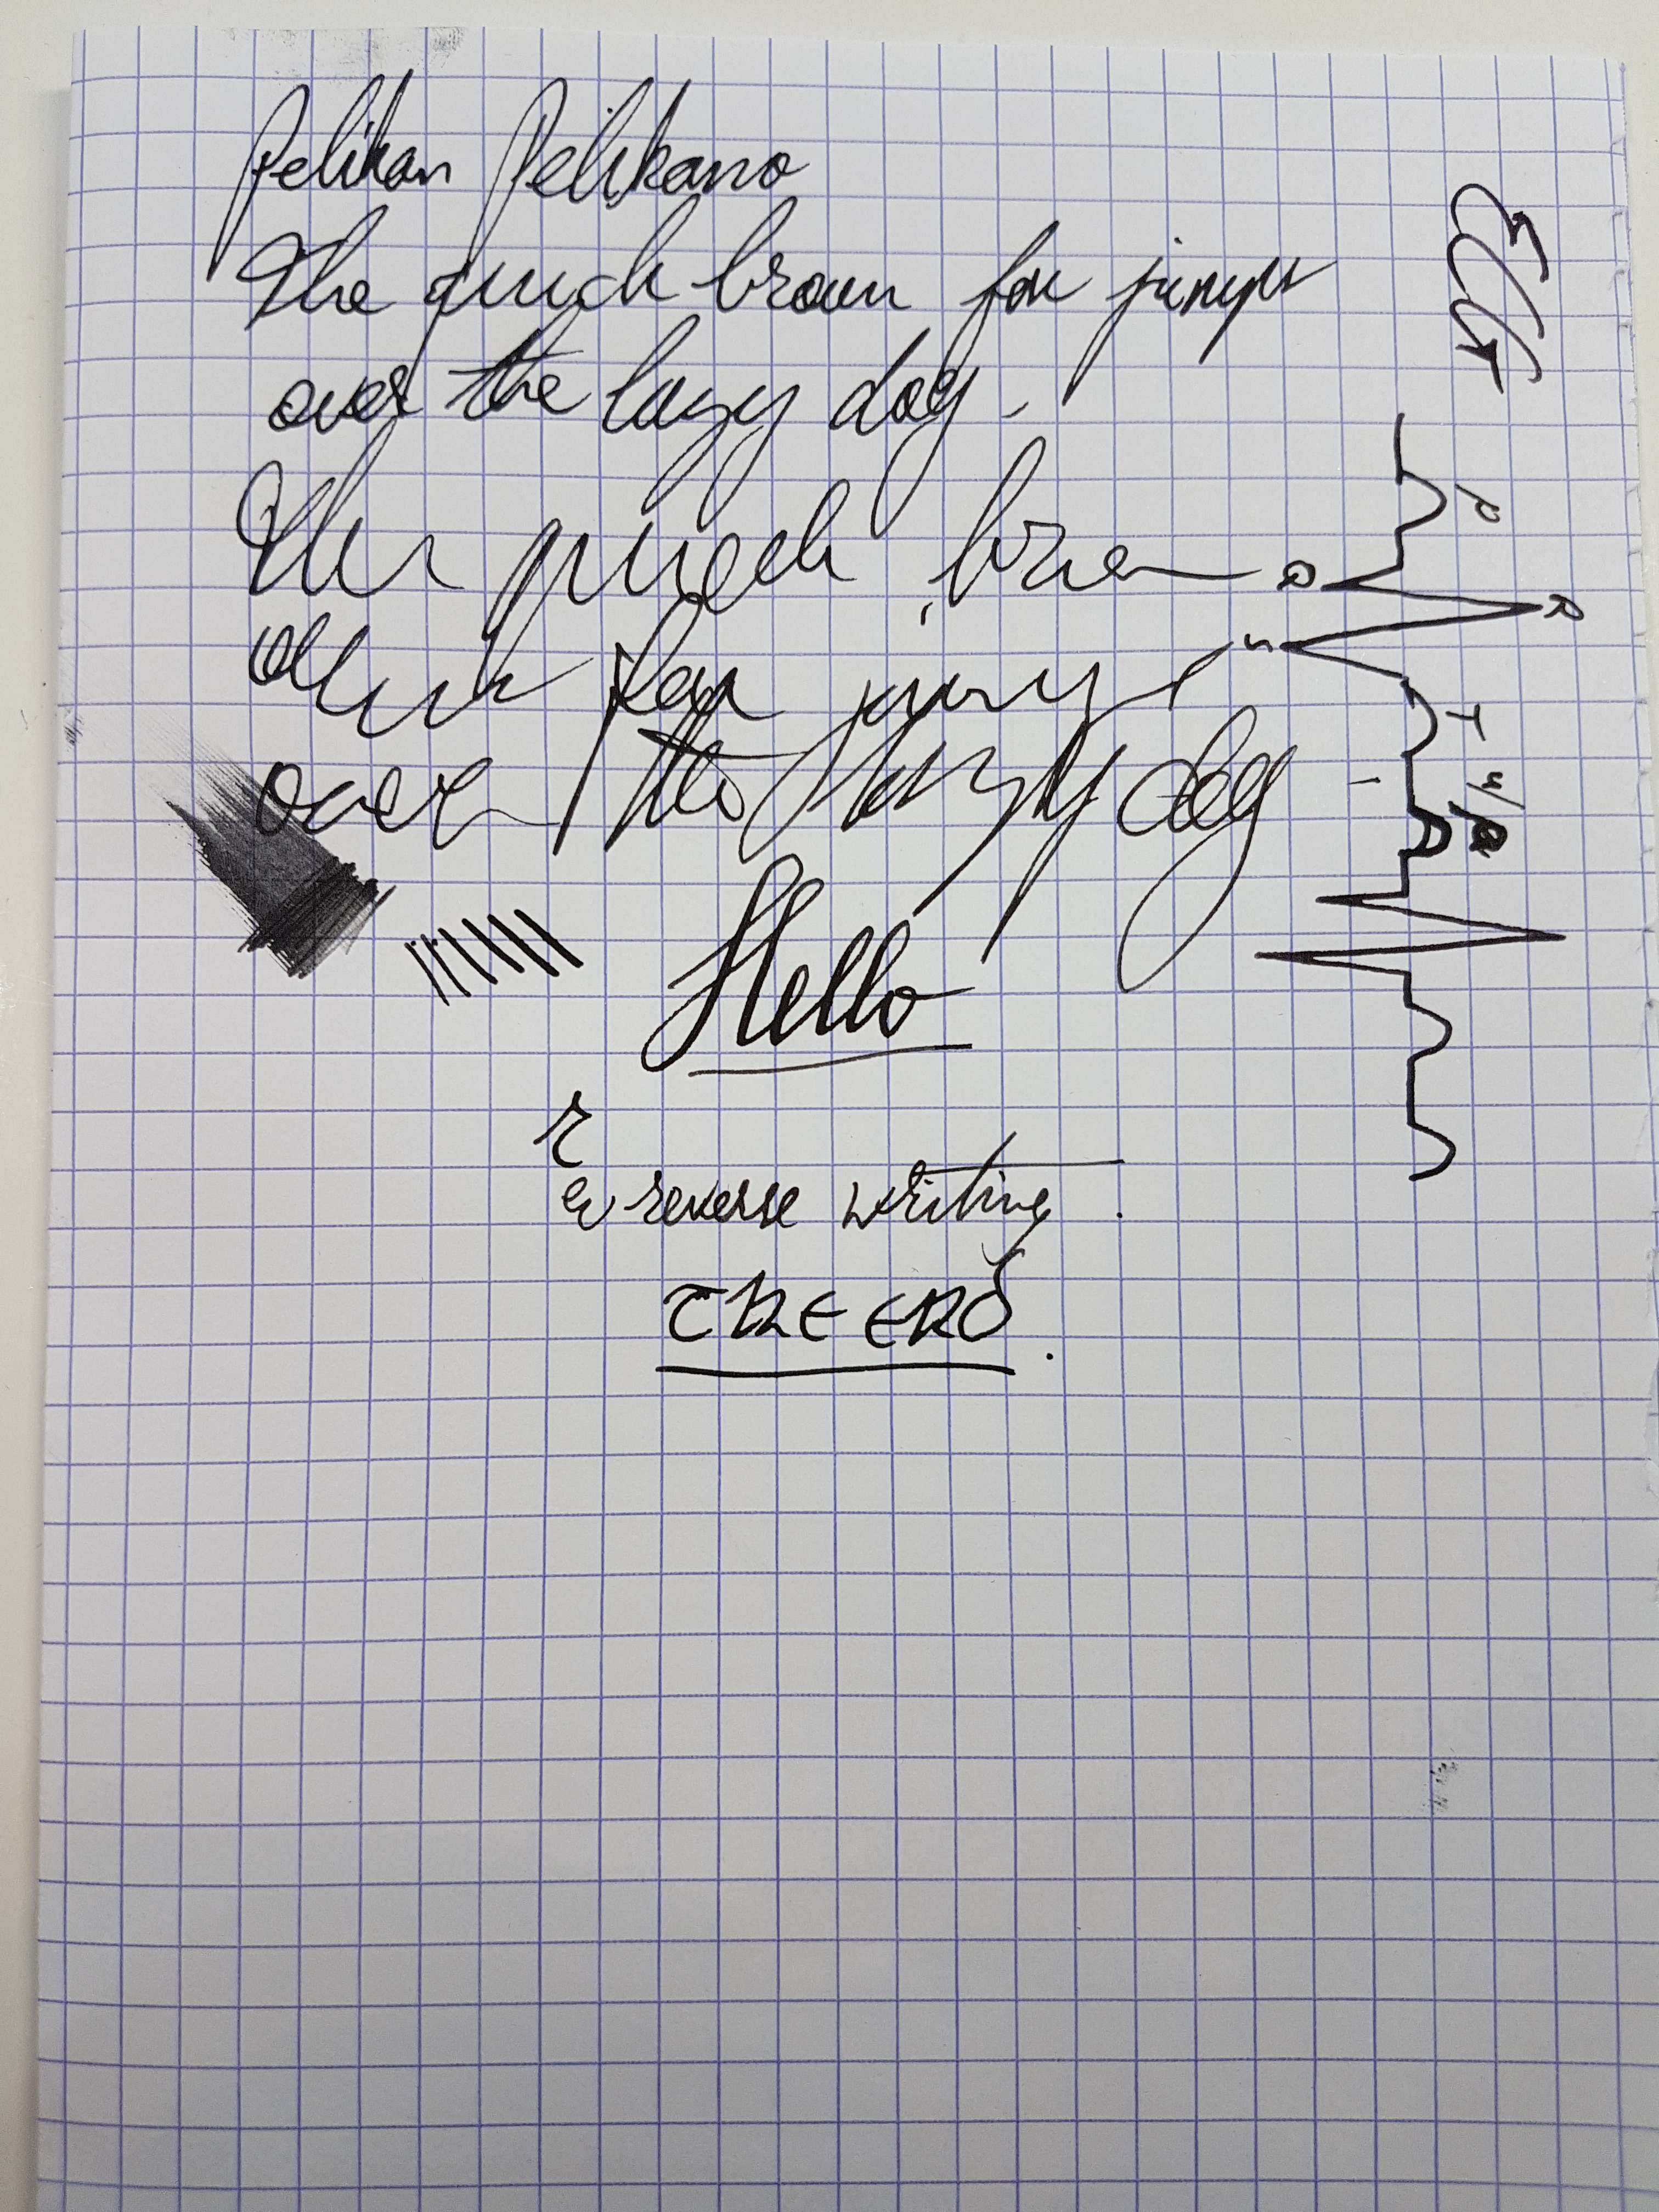 Pelikan Pelikano
The quick brown fox jumps
over the lazy dog.
The quick brown
quick fox jumps
over the lazy dog
Hello
r
reverse writing.
CHEERS.
P
Q
R
S
T